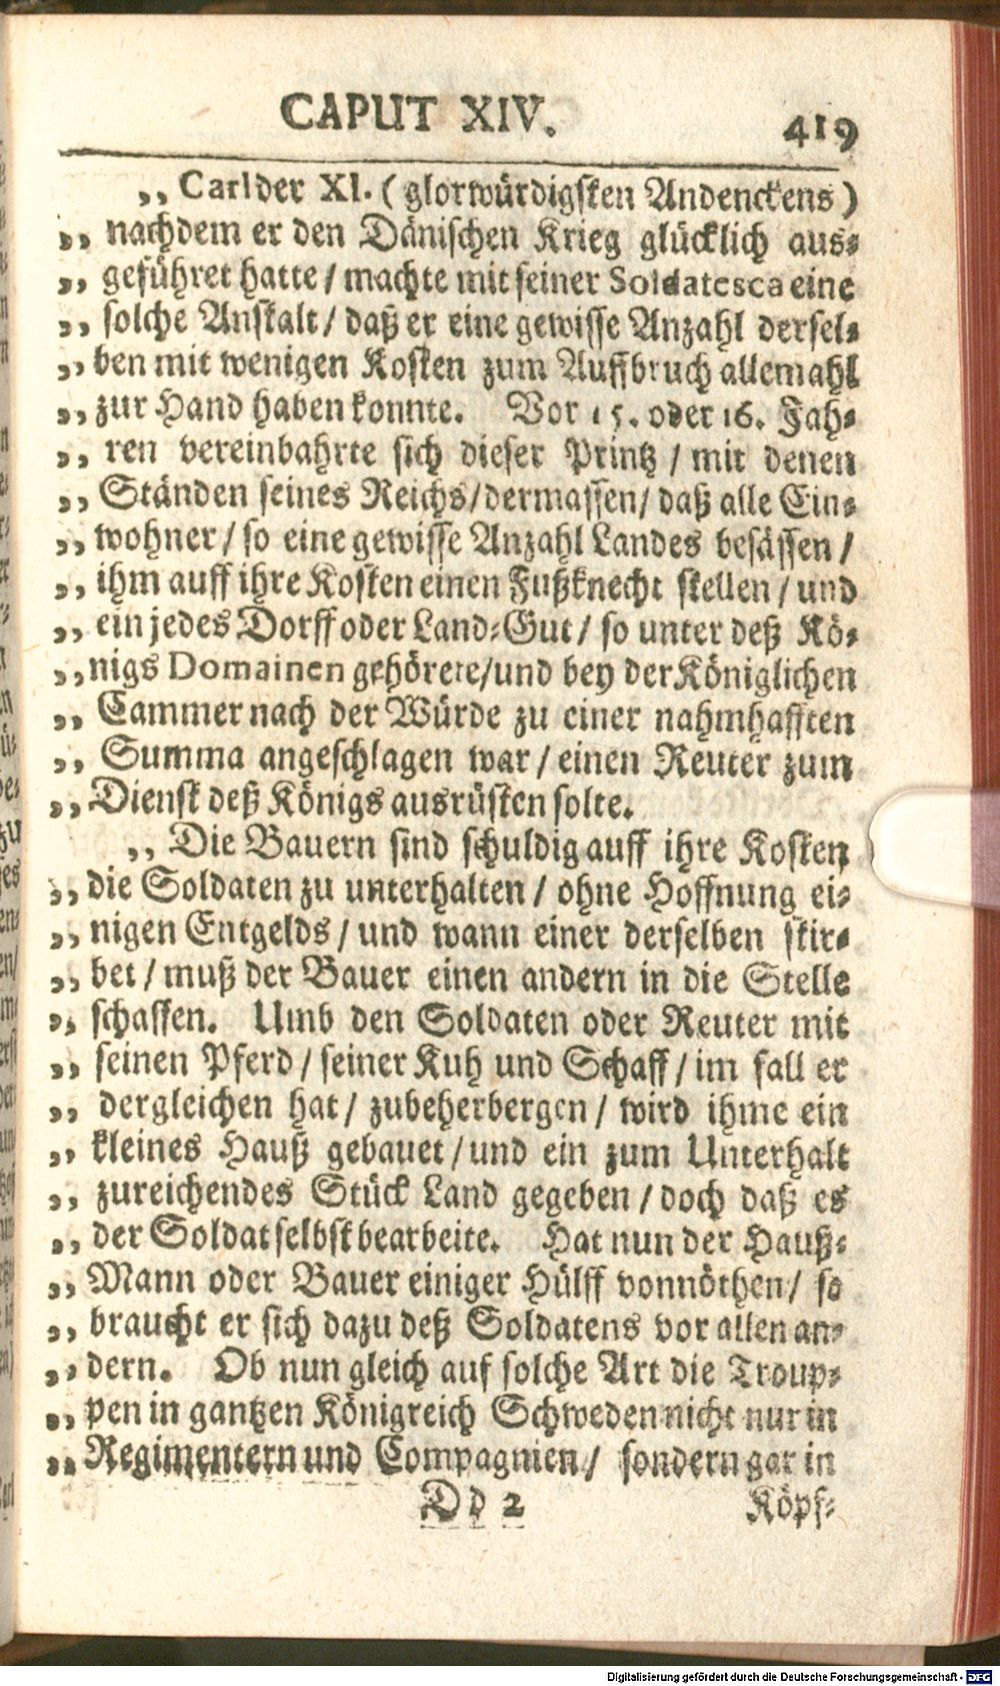 CAPUT XIV. 419
„ Carl der XI. ( glorwürdigsten Andenckens )
„ nachdem er den Dänischen Krieg glücklich aus-
„ geführet hatte / machte mit seiner Soldatesca eine
„ solche Anstalt / daß er eine gewisse Anzahl dersel-
„ ben mit wenigen Kosten zum Auffbruch allemahl
„ zur Hand haben konnte. Vor 15. oder 16. Jah-
„ ren vereinbahrte sich dieser Printz / mit denen
„ Ständen seines Reichs / dermassen / daß alle Ein-
„ wohner / so eine gewisse Anzahl Landes besässen /
„ ihm auff ihre Kosten einen Fußknecht stellen / und
„ ein jedes Dorff oder Land-Gut / so unter deß Kö-
„ nigs Domainen gehörete / und bey der Königlichen
„ Cammer nach der Würde zu einer nahmhafften
„ Summa angeschlagen war / einen Reuter zum
„ Dienst deß Königs ausrüsten solte.
„ Die Bauern sind schuldig auff ihre Kosten
„ die Soldaten zu unterhalten / ohne Hoffnung ei-
„ nigen Entgelds / und wann einer derselben stir-
„ bet / muß der Bauer einen andern in die Stelle
„ schaffen. Umb den Soldaten oder Reuter mit
„ seinen Pferd / seiner Kuh und Schaff / im fall er
„ dergleichen hat / zubeherbergen / wird ihme ein
„ kleines Hauß gebauet / und ein zum Unterhalt
„ zureichendes Stück Land gegeben / doch daß es
„ der Soldat selbst bearbeite. Hat nun der Hauß-
„ Mann oder Bauer einiger Hülff vonnöthen / so
„ braucht er sich dazu deß Soldatens vor allen an-
„ dern. Ob nun gleich auf solche Art die Troup-
„ pen in gantzen Königreich Schweden nicht nur in
„ Regimentern und Compagnien / sondern gar in
Dd 2 Köpf-
Digitalisierung gefördert durch die Deutsche Forschungsgemeinschaft - DFG